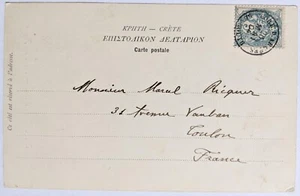 ΚΡΗΤΗ — CRÈTE
ΕΠΙΣΤΟΛΙΚΟΝ ΔΕΛΤΑΡΙΟΝ
Carte postale
Ce côté est réservé à l'adresse.
Monsieur Marcel Ricquer
31 Avenue Vauban
Toulon
France